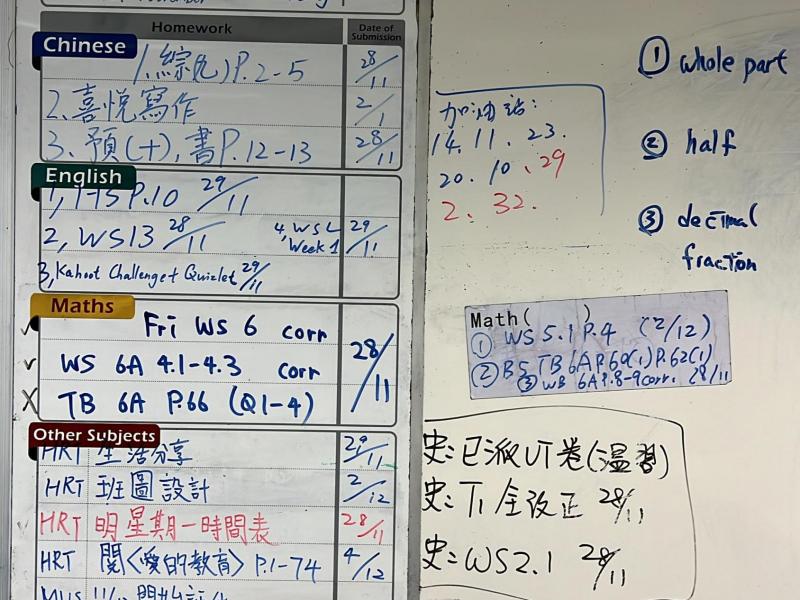 Homework
Date of Submission
Chinese
1. 綜(九) P.2-5 28/11
2. 喜悅寫作 2/1
3. 預(十), 書P.12-13 28/11
English
P.10 29/11
2, WS13 28/11
4, WS L Week 1 29/11
3, Kahoot Challenge + Quizlet 29/11
Maths
✓ Fri WS 6 corr
✓ WS 6A 4.1-4.3 corr
X TB 6A P.66 (Q1-4)
28/11
Other Subjects
HRT 生活分享 29/11
HRT 班圖設計 2/12
HRT 明星期一時間表 28/11
HRT 閱《愛的教育》 P.1-74 4/12
加油站:
14. 11. 23.
20. 10. 29
2. 32.
① whole part
② half
③ decimal fraction
Math( )
① WS 5.1 P.4 (2/12)
② BS TB 6A P.60(1) P.62(1)
③ WB 6A P.8-9 corr. 28/11
史: 已派UT卷(溫習)
史: 下1全改正 28/11
史: WS2.1 28/11